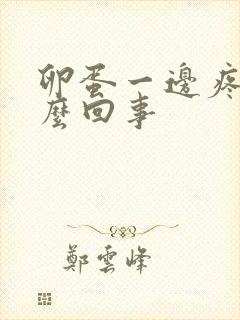 卵蛋一邊疼
麼回事
鄭雲峰